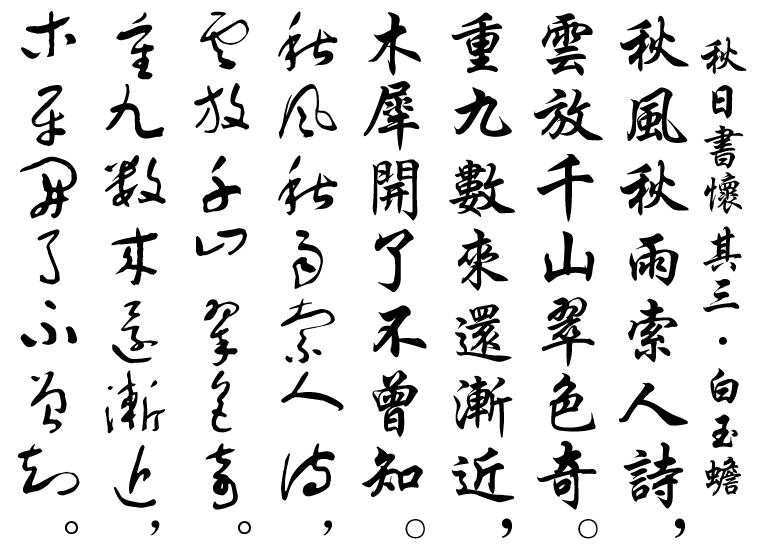 秋日書懷其三·白玉蟾
秋風秋雨索人詩，
雲放千山翠色奇。
重九數來還漸近，
木犀開了不曾知。
秋風秋雨索人詩，
雲放千山翠色奇。
重九數來還漸近，
木犀開了不曾知。